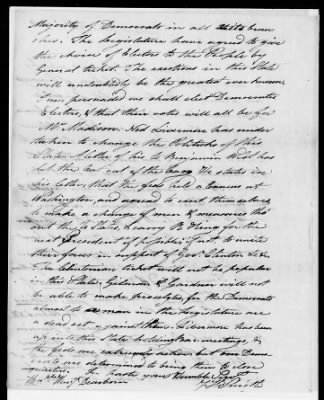 Majority of Democrats in all its bran
ches. The Legislature have agreed to give
the choice of Electors to the People by
General ticket. The exertions in this State
will undoubtedly be the greatest ever known.
I am persuaded we shall elect Democratic
Electors, & that their votes will all be for
Mr Madison. Ned Livermore has under
taken to change the Politicks of this
State. A letter of his to Benjamin West has
let the Cat out of the bagg. He states in
his letter, that the Feds held a Caucus at
Washington, and agreed to exert themselves
to make a change of men & measures thro'
out the U States, & carry R King for the
next President if possible, if not to unite
their force in support of Gov. Clinton &c &c
The Clintonian ticket will not be popular
in this State. Gilman & Gardner will not
be able to make proselytes, for the Democrats
almost to a man in the Legislature are
a dead set against them. Livermore has been
up into this State holding meetings, &
the Feds are extremely active, but our Demo
crats are determined to bring them to close
quarters. In haste your Humble Servt
Dearborn J. Smith